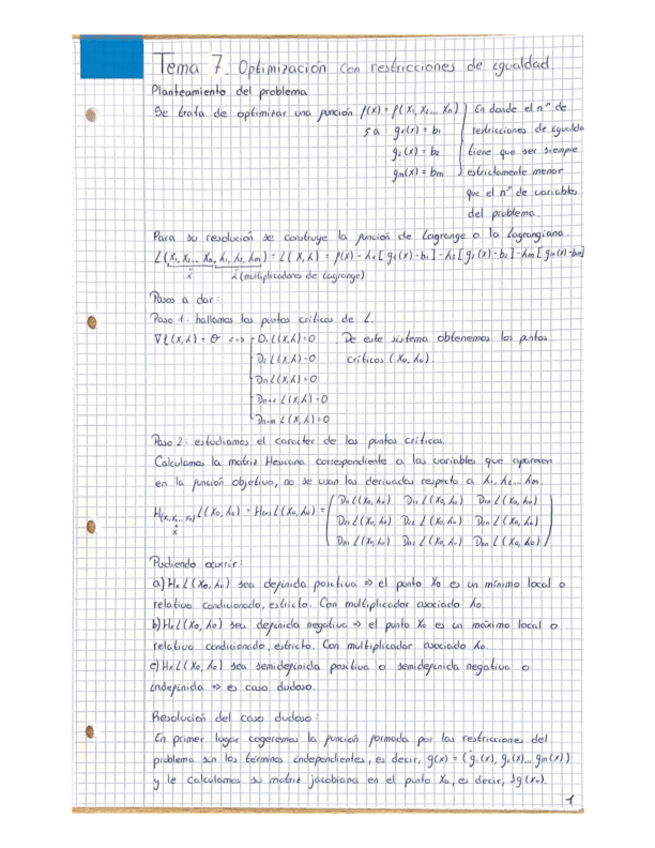 Tema 7. Optimización con restricciones de igualdad
Planteamiento del problema
Se trata de optimizar una función f(x) = f(x₁, x₂... xₙ) En donde el nº de
s a g₁(x) = b₁ restricciones de iguald
g₂(x) = b₂ tiene que ser siempre
gₘ(x) = bₘ estrictamente menor
que el nº de variables
del problema.
Para su resolución se construye la función de Lagrange o la Lagrangiana.
L(x₁, x₂... xₙ, λ₁, λ₂, λₘ) = L(x, λ) = f(x) - λ₁[g₁(x)-b₁] - λ₂[g₂(x)-b₂] - λₘ[gₘ(x)-bₘ]
x λ (multiplicadores de Lagrange)
Pasos a dar:
Paso 1: hallamos los puntos críticos de L.
∇L(x, λ) = θ <=> D₁L(x, λ) = 0 De este sistema obtenemos los puntos
D₂L(x, λ) = 0 críticos (x₀, λ₀).
DₙL(x, λ) = 0
Dₙ₊₁L(x, λ) = 0
Dₙ₊ₘL(x, λ) = 0
Paso 2: estudiamos el caracter de los puntos críticos.
Calculamos la matriz Hessiana correspondiente a las variables que aparecen
en la función objetivo, no se usan las derivadas respecto a λ₁, λ₂... λₘ.
D₁₁L(x₀, λ₀) D₁₂L(x₀, λ₀) D₁ₙL(x₀, λ₀)
H(x₁, x₂... xₙ)L(x₀, λ₀) = H(x)L(x₀, λ₀) = D₂₁L(x₀, λ₀) D₂₂L(x₀, λ₀) D₂ₙL(x₀, λ₀)
x Dₙ₁L(x₀, λ₀) Dₙ₂L(x₀, λ₀) DₙₙL(x₀, λ₀)
Pudiendo ocurrir:
a) HₓL(x₀, λ₀) sea definida positiva => el punto x₀ es un mínimo local o
relativo condicionado, estricto. Con multiplicador asociado λ₀.
b) HₓL(x₀, λ₀) sea definida negativa => el punto x₀ es un máximo local o
relativo condicionado, estricto. Con multiplicador asociado λ₀.
c) HₓL(x₀, λ₀) sea semidefinida positiva o semidefinida negativa o
indefinida => es caso dudoso.
Resolución del caso dudoso:
En primer lugar cogeremos la función formada por las restricciones del
problema sin los términos independientes, es decir, g(x) = (g₁(x), g₂(x)... gₘ(x))
y le calculamos su matriz jacobiana en el punto x₀, es decir, Jg(x₀).
1